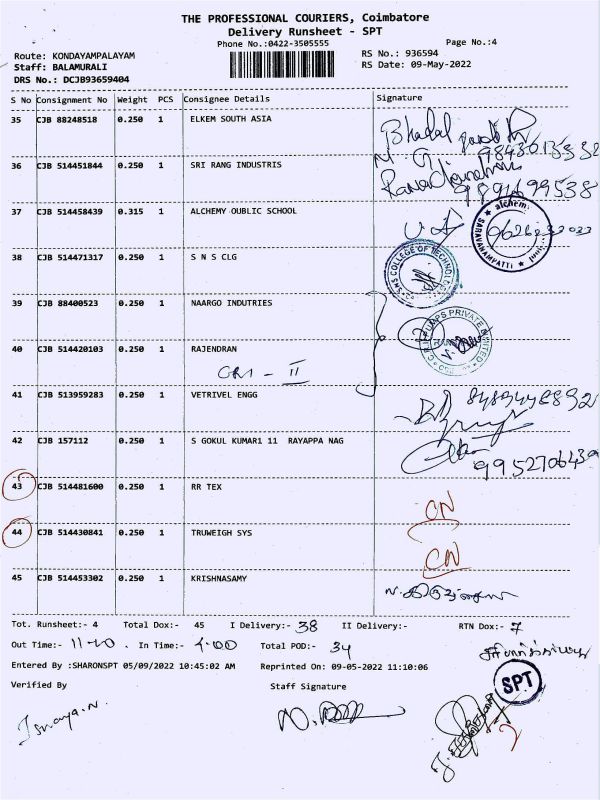 THE PROFESSIONAL COURIERS, Coimbatore
Delivery Runsheet - SPT
Phone No.:0422-3505555
Page No.:4
Route: KONDAYAMPALAYAM
RS No.: 936594
Staff: BALAMURALI
RS Date: 09-May-2022
DRS No.: DCJB93659404
S No Consignment No Weight PCS Consignee Details Signature
35 CJB 88248518 0.250 1 ELKEM SOUTH ASIA
36 CJB 514451844 0.250 1 SRI RANG INDUSTRIS
37 CJB 514458439 0.315 1 ALCHEMY OUBLIC SCHOOL
38 CJB 514471317 0.250 1 S N S CLG
39 CJB 88400523 0.250 1 NAARGO INDUTRIES
40 CJB 514420103 0.250 1 RAJENDRAN
41 CJB 513959283 0.250 1 VETRIVEL ENGG
42 CJB 157112 0.250 1 S GOKUL KUMAR1 11 RAYAPPA NAG
9952706439
43 CJB 514481600 0.250 1 RR TEX
CN
44 CJB 514430841 0.250 1 TRUWEIGH SYS
CN
45 CJB 514453302 0.250 1 KRISHNASAMY
Tot. Runsheet:- 4 Total Dox:- 45 I Delivery:- 38 II Delivery:- RTN Dox:- 7
Out Time:- 11-20 . In Time:- 4.00 Total POD:- 34
Entered By :SHARONSPT 05/09/2022 10:45:02 AM Reprinted On: 09-05-2022 11:10:06
Verified By Staff Signature
SPT